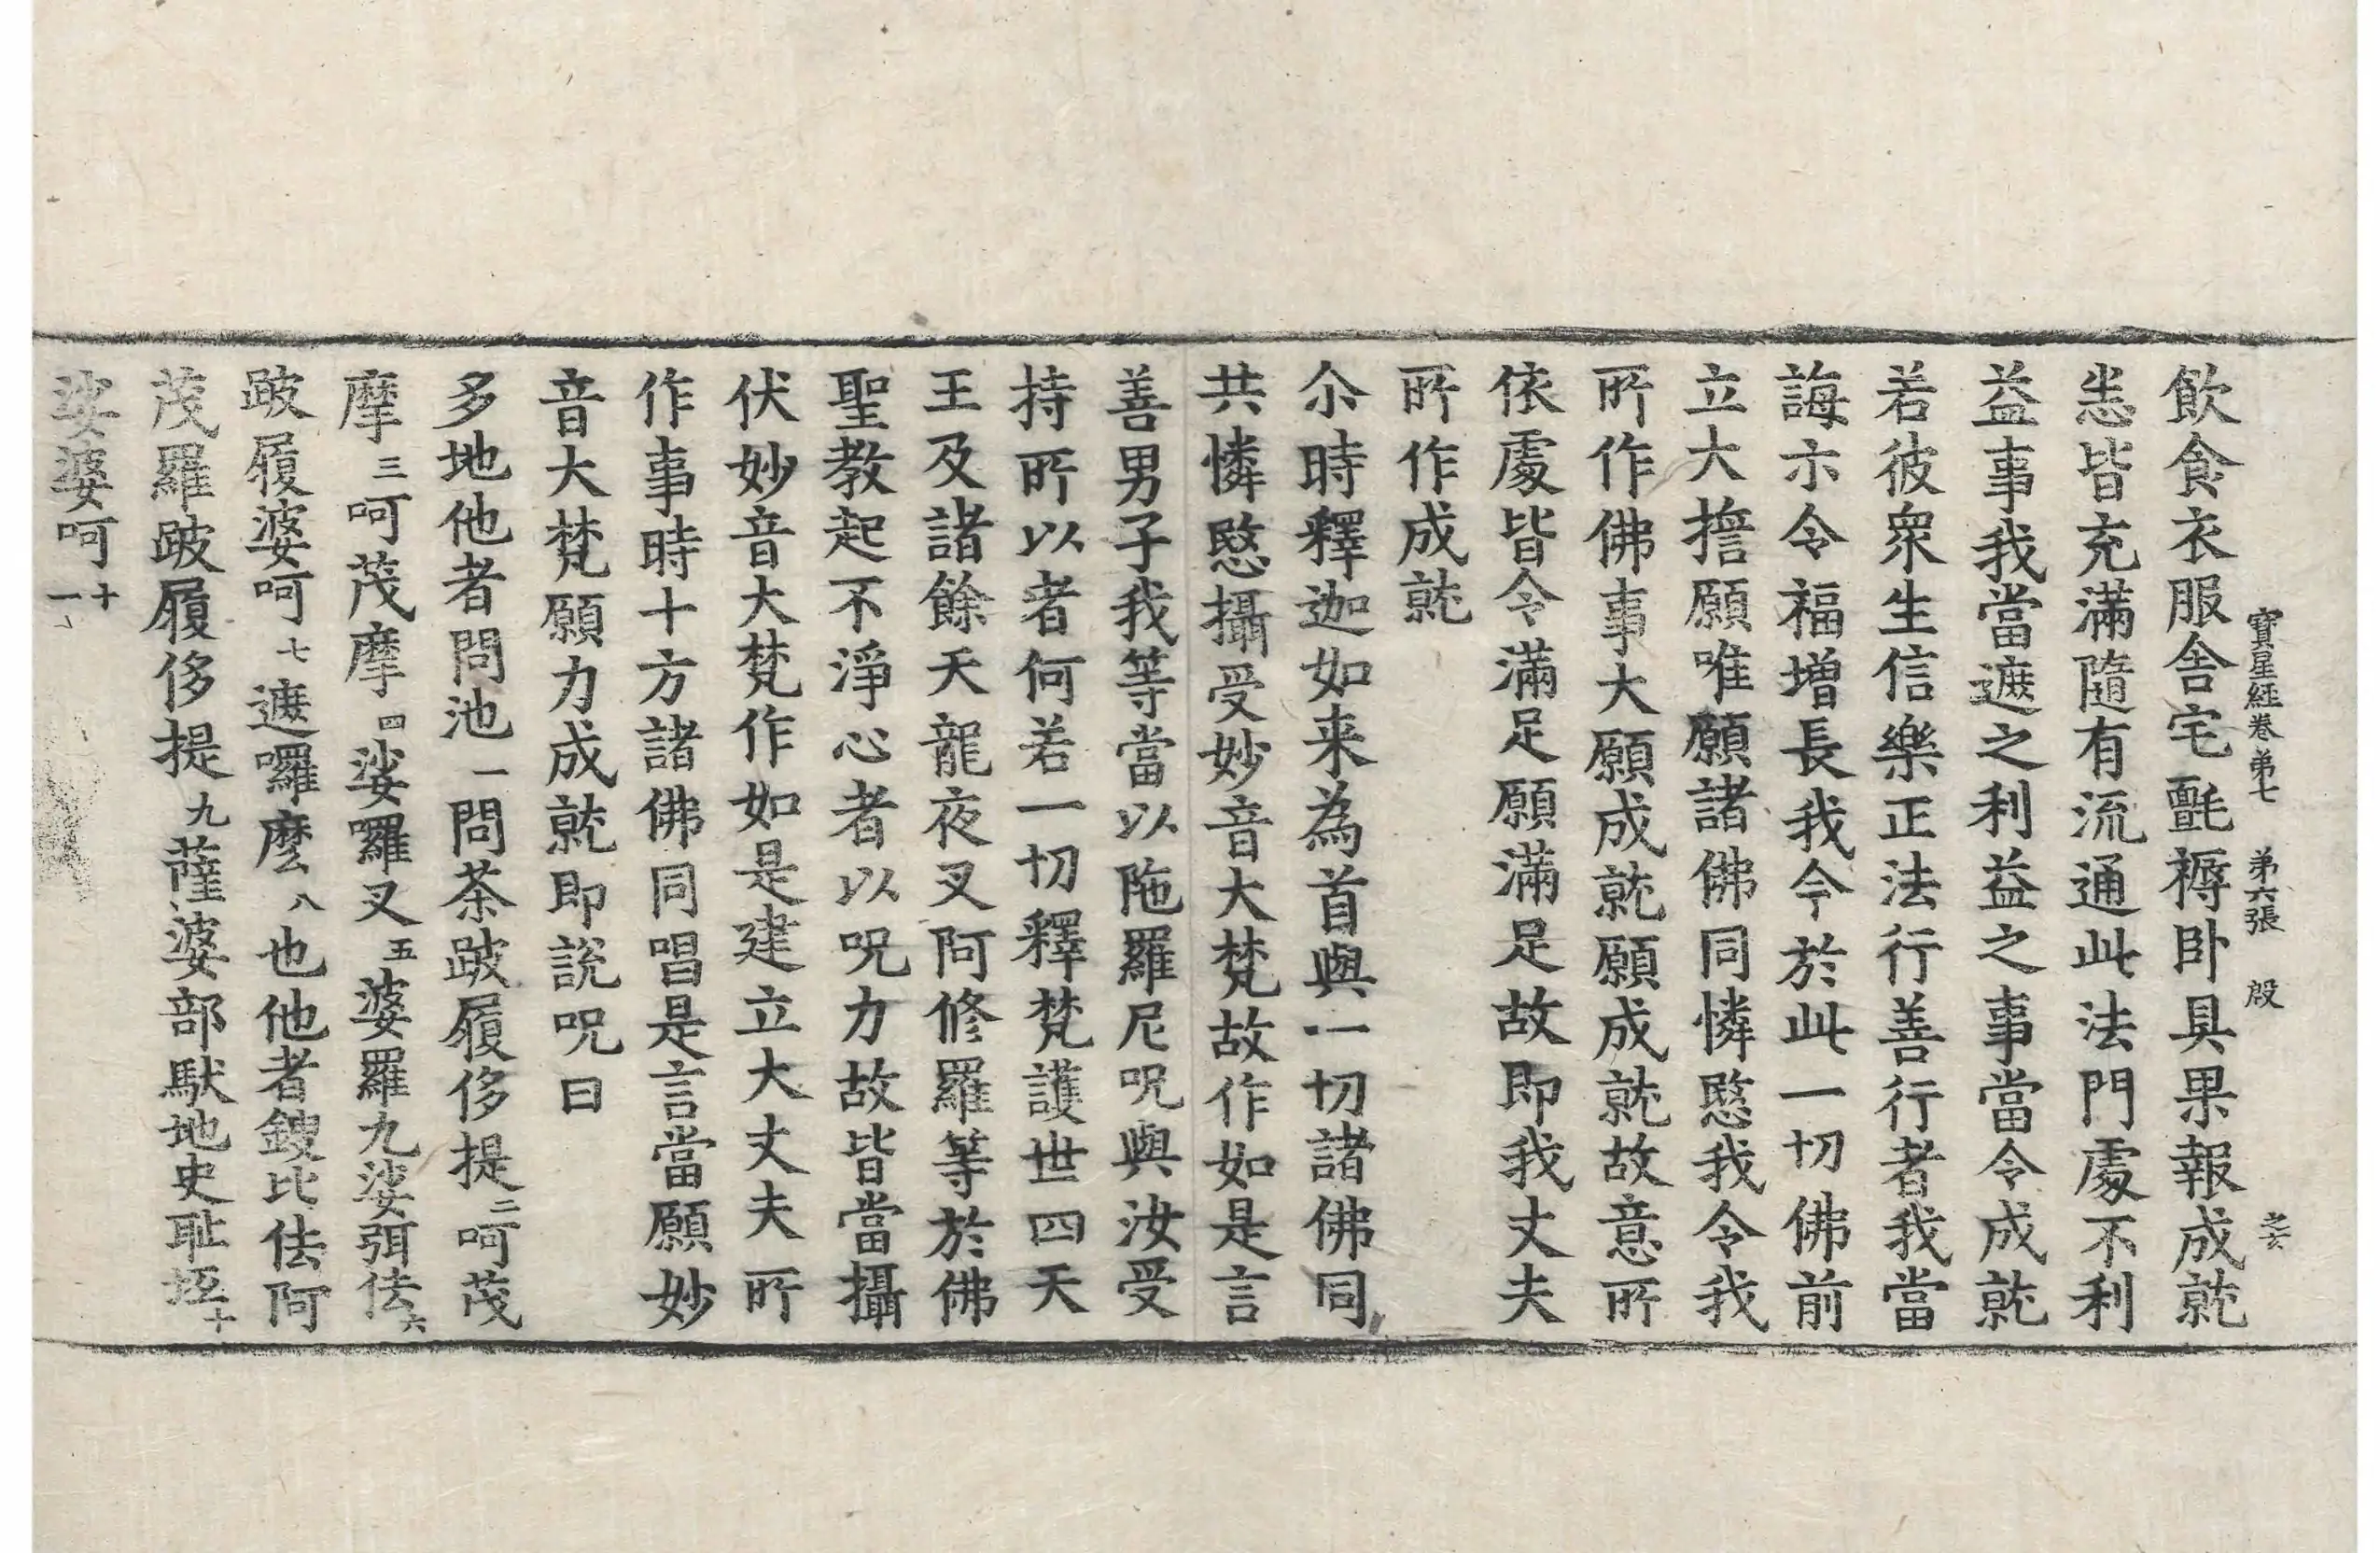 寶星經卷第七 第六張 殷
飲食衣服舍宅氍褥卧具果報成就
恙皆充滿隨有流通此法門處不利
益事我當遮之利益之事當令成就
若彼衆生信樂正法行善行者我當
誨示令福增長我今於此一切佛前
立大擔願唯願諸佛同憐愍我令我
所作佛事大願成就願成就故意所
依處皆令滿足願滿足故即我丈夫
所作成就
尒時釋迦如来為首與一切諸佛同
共憐愍攝受妙音大梵故作如是言
善男子我等當以陁羅尼呪與汝受
持所以者何若一切釋梵護世四天
王及諸餘天龍夜叉阿修羅等於佛
聖教起不淨心者以呪力故皆當攝
伏妙音大梵作如是建立大丈夫所
作事時十方諸佛同唱是言當願妙
音大梵願力成就即說呪曰
多地他者問池一問茶跛履侈提二呵茂
摩三呵茂摩四娑囉叉五婆羅九娑弭佉六
跛履婆呵七遮囉麼八也他者鎪比佉阿
茂羅跛履侈提九薩婆部馱地史耻㘸十
娑婆呵十一